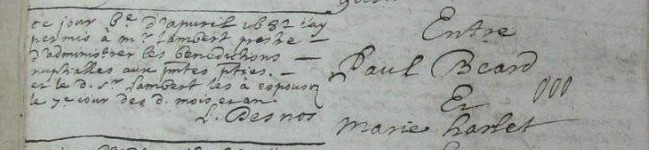 ce jour 6e d'apuril 1682 j'ay
permis à mr lambert prestre
d'administrer les benedictions
nuptialles aux pntes pties.
et le d. sr lambert les à espousé
le 7e jour des d. mois et an
L. Desnos
Entre
Paul Beard
Et
Marie harlet